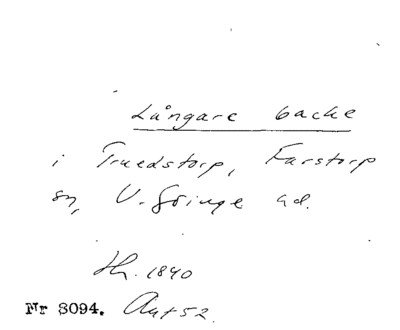 Långare backe
i Truedstorp, Farstorp
sn, V. Göinge hd.
Hr. 1840
Nr 3094. Ant 52.